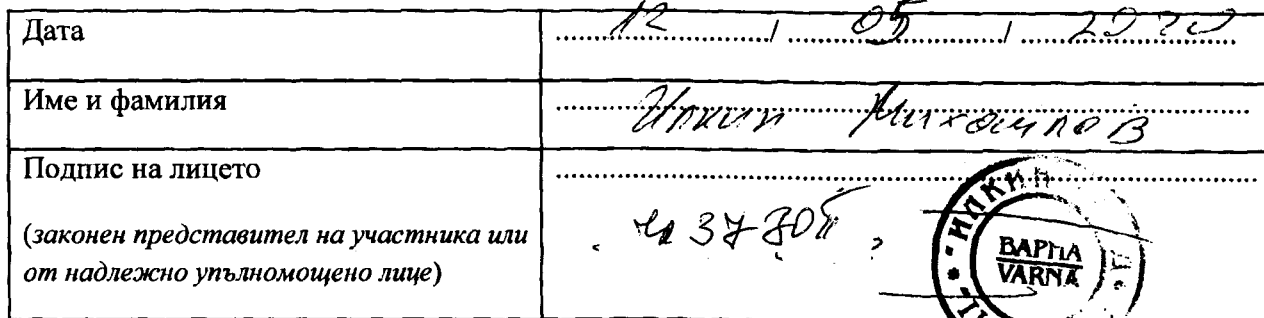 Дата 12 / 05 / 2020
Име и фамилия Илкин Михайлов
Подпис на лицето
(законен представител на участника или
от надлежно упълномощено лице)
ИЛКИН
ВАРНА
VARNA